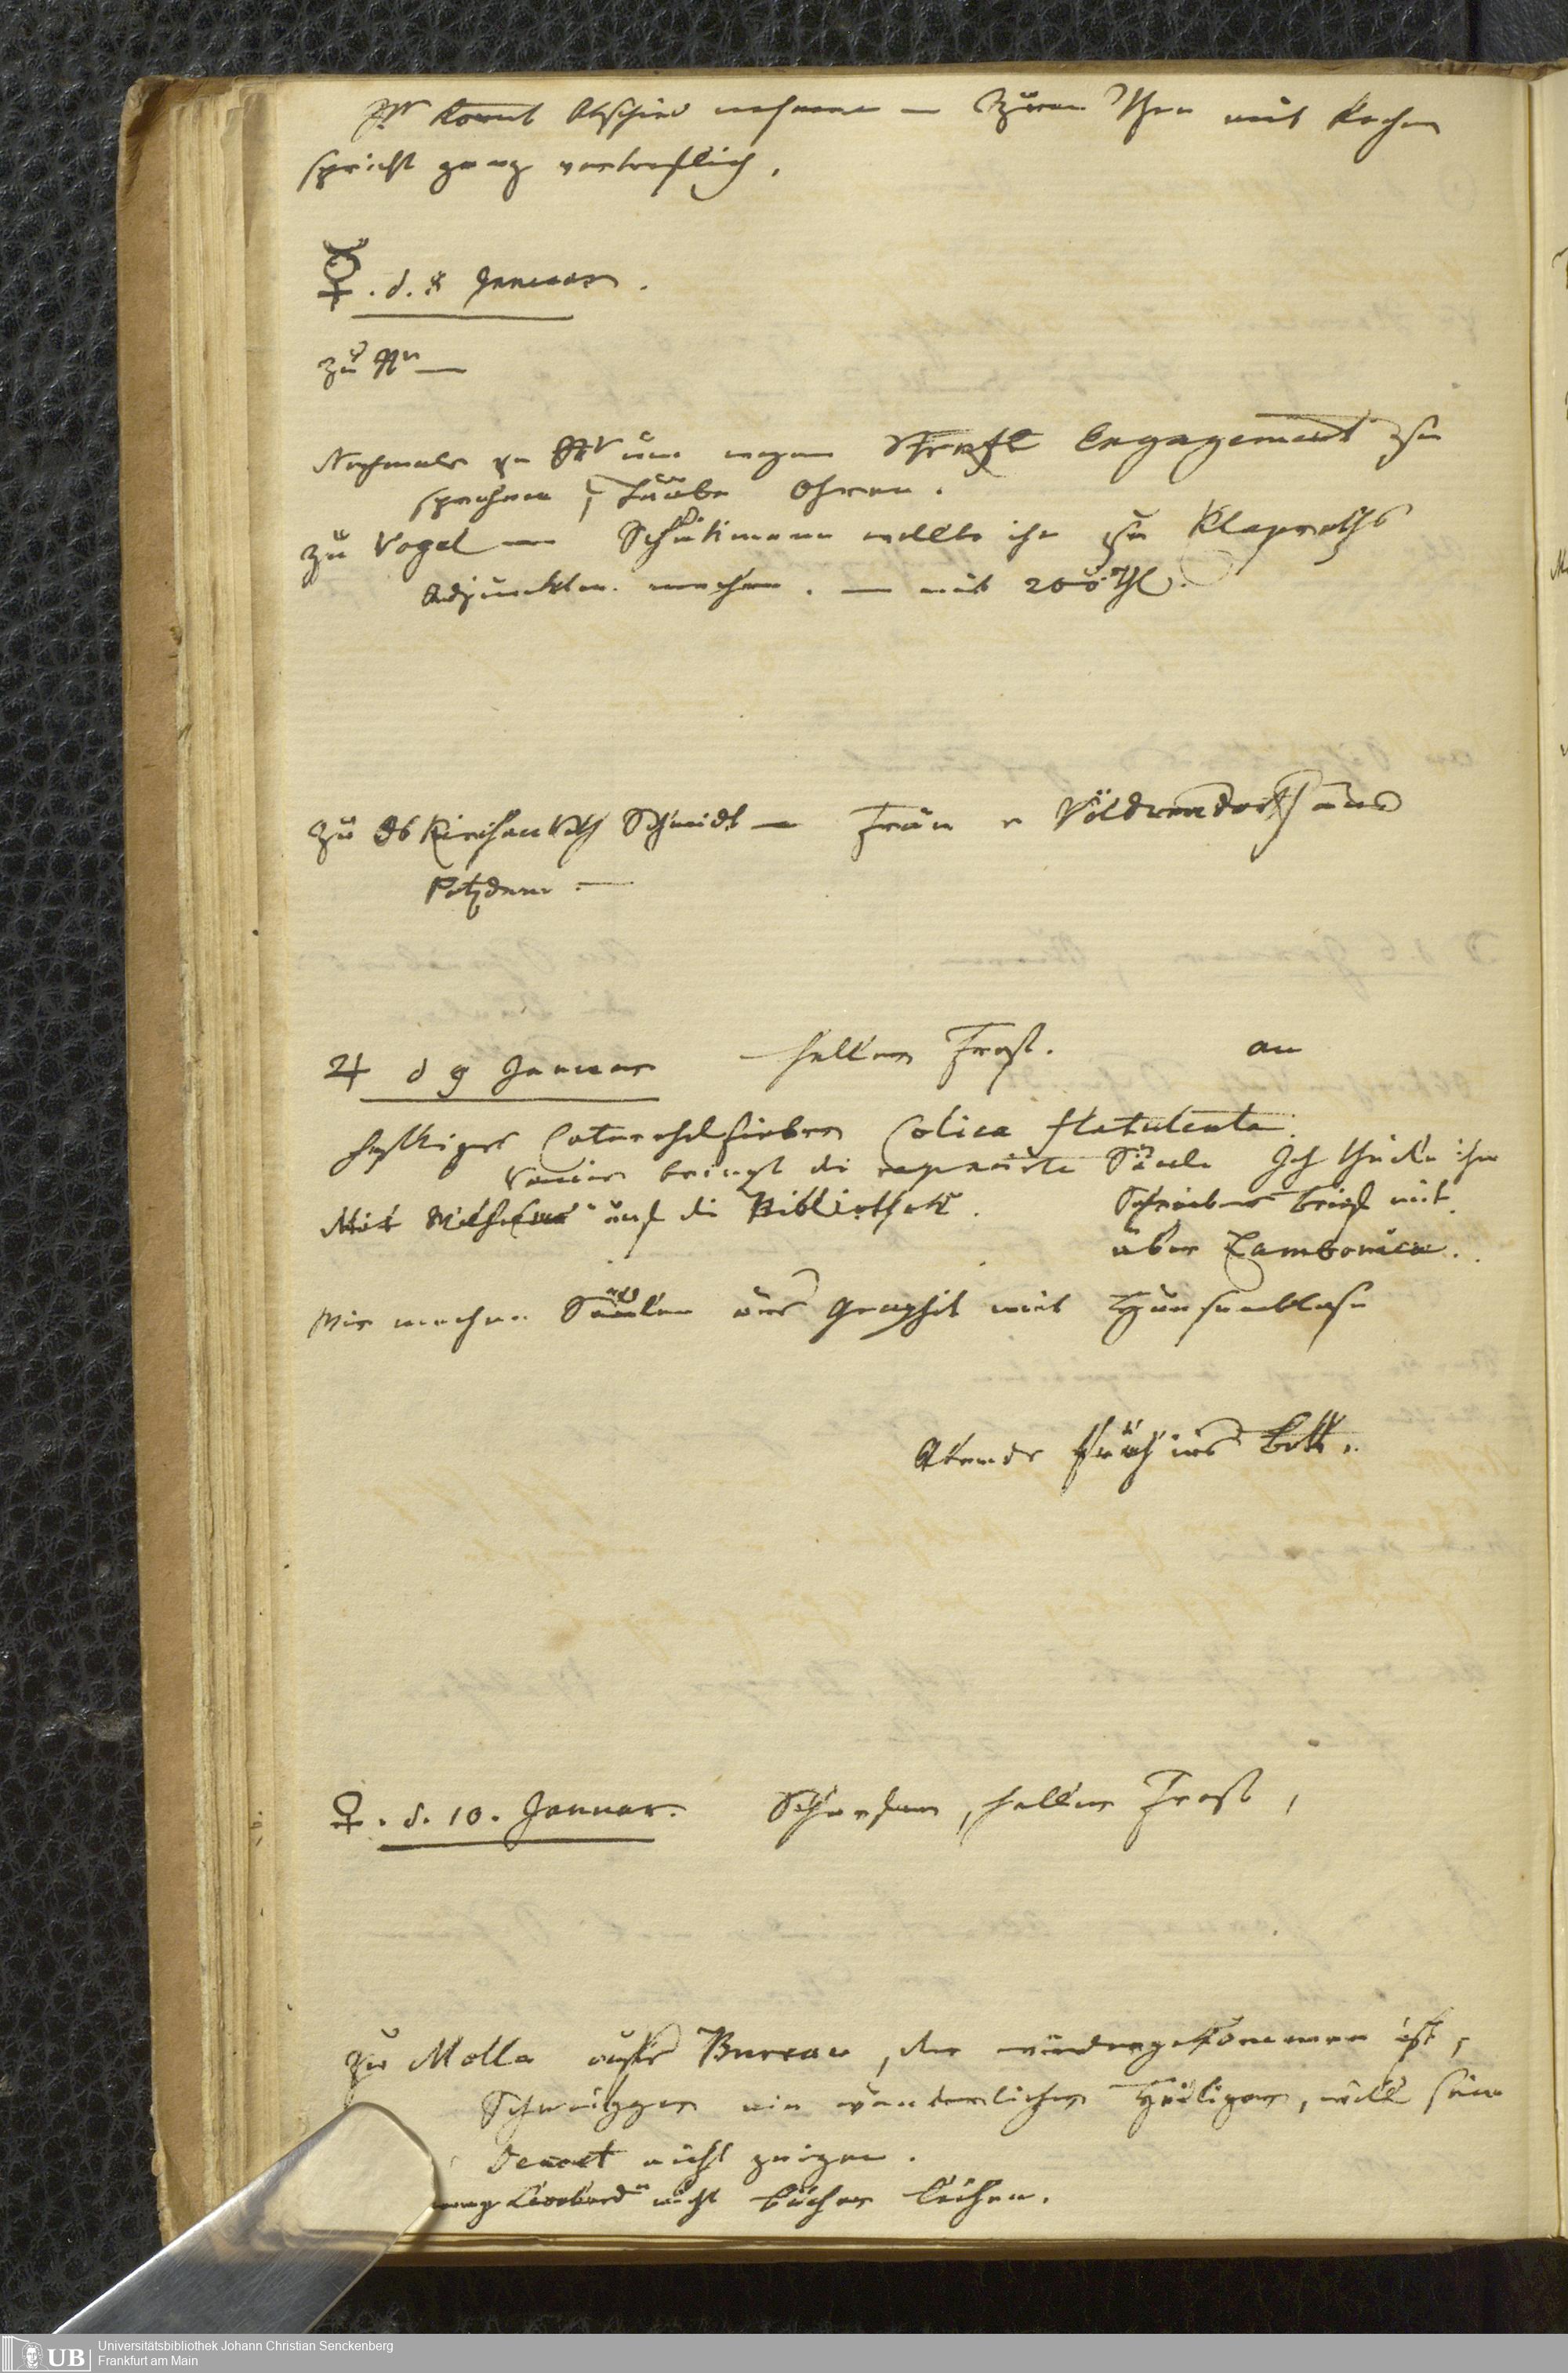 kommt Abschied nehmen — Thee mit Kuchen
spricht ganz vortreflich.
☿. d. 8 Januar.
zu
Nochmals zu wegen Engagement zu
sprechen, taube Ohren.
zu Vogel — Schukmann wollte ihn zu Klaproths
Adjunkten machen. — mit 200 Thl.
zu Kirchenrath Schmidt — Frau v Völdrendorf aus
Potzdam —
♃ d 9 Januar heller Frost. an
heftiges Catarrhalfieber Colica flatulenta.
bringt die reparirte Säule Ich schicke ihm
Mit auf die Bibliothek. Schreibers Brief mit
über Zamboni
Wir machen Säulen aus Graphit mit Hausenblase
Abends früh ins Bett.
♀. d. 10. Januar. heller Frost,
zu Molla aufs Bureau, der wiedergekommen ist,
Schweigger ein wunderlicher Heiliger, will sein
nicht zeigen.
mag nicht Bücher leihen.
UB Universitätsbibliothek Johann Christian Senckenberg
Frankfurt am Main